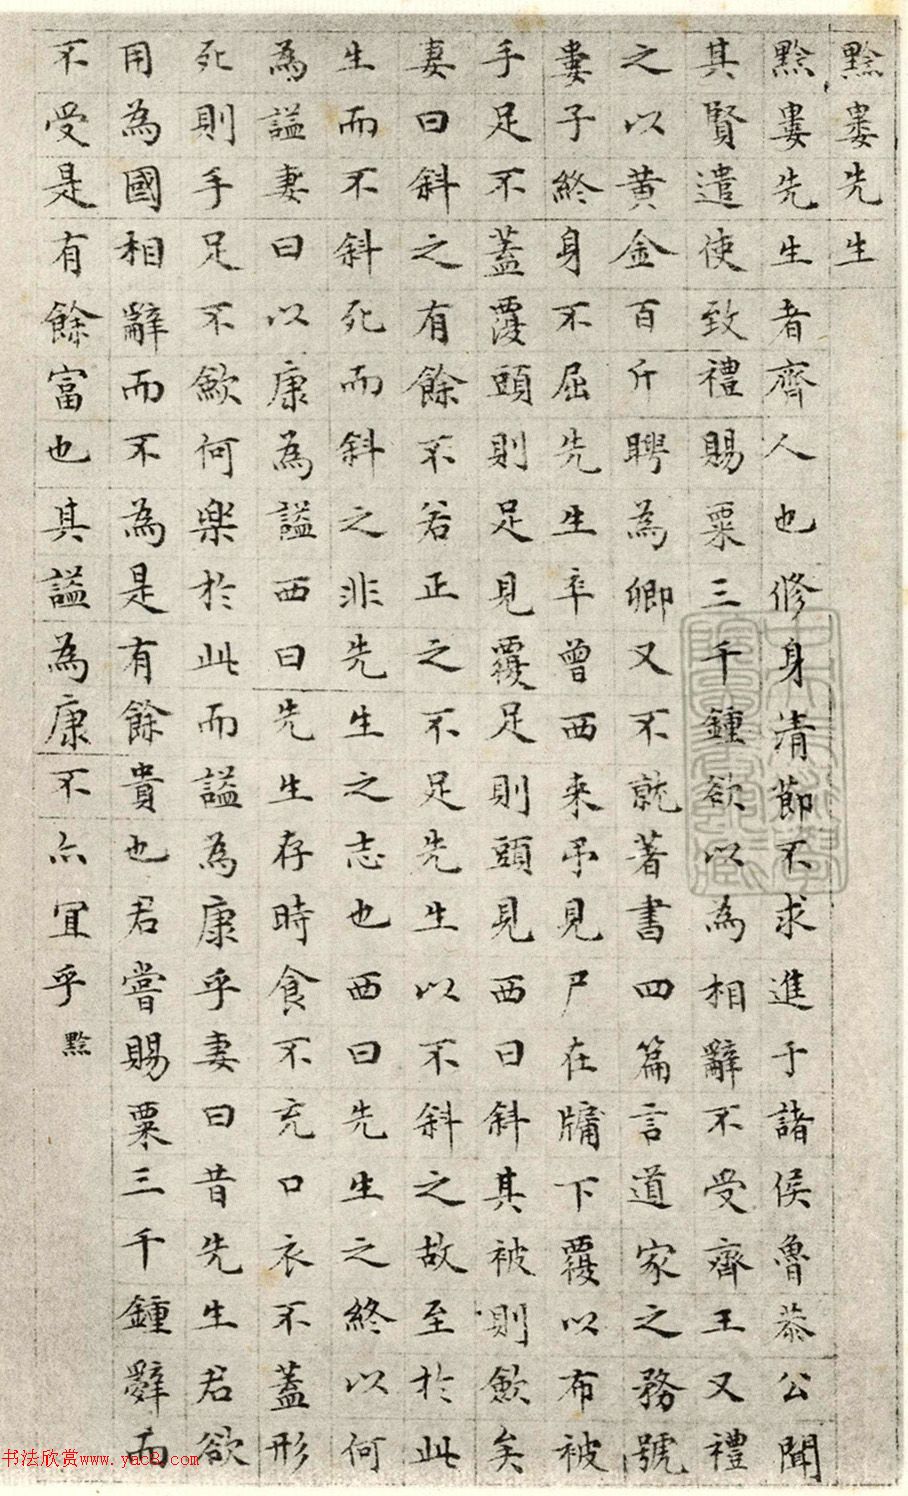 黔婁先生
黔婁先生者齊人也修身清節不求進于諸侯魯恭公聞
其賢遣使致禮賜粟三千鍾欲以為相辭不受齊王又禮
之以黃金百斤聘為卿又不就著書四篇言道家之務號
婁子終身不屈先生卒曾西來弔見尸在牖下覆以布被
手足不蓋覆頭則足見覆足則頭見西曰斜其被則歛矣
妻曰斜之有餘不若正之不足先生以不斜之故至於此
生而不斜死而斜之非先生之志也西曰先生之終以何
為謚妻曰以康為謚西曰先生存時食不充口衣不蓋形
死則手足不歛何樂於此而謚為康乎妻曰昔先生君欲
用為國相辭而不為是有餘貴也君嘗賜粟三千鍾辭而
不受是有餘富也其謚為康不亦宜乎 黔
书法欣赏www.yac8.com